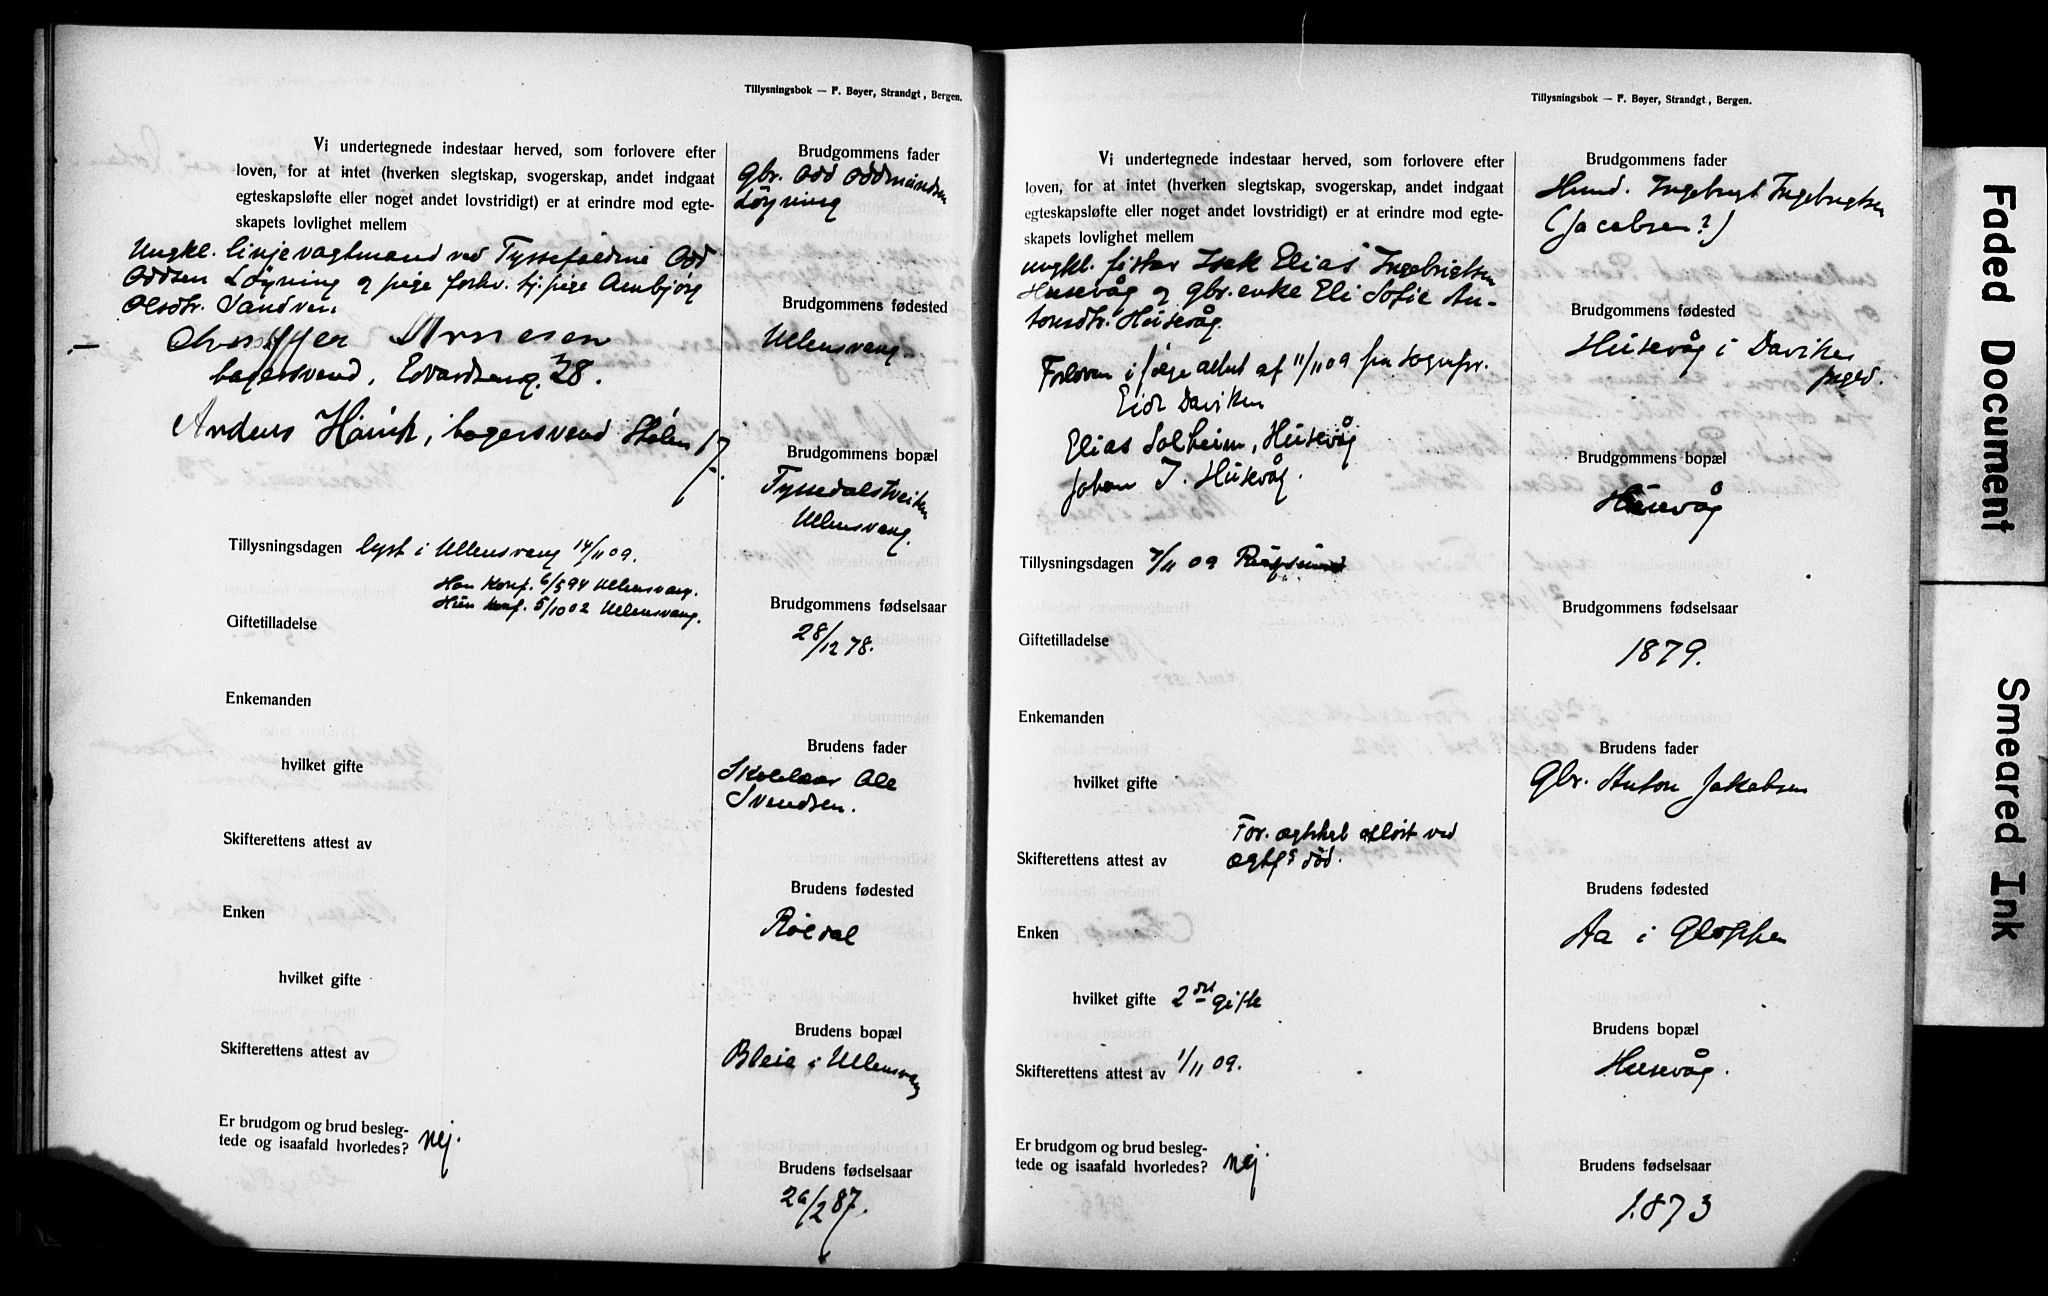 Tillysningsbok — F. Bøyer, Strandgt, Bergen.
Vi undertegnede indestaar herved, som forlovere efter
loven, for at intet (hverken slegtskap, svogerskap, andet indgaat
egteskapsløfte eller noget andet lovstridigt) er at erindre mod egte-
skapets lovlighet mellem
Ungkl. linjevagtmand ved Tyssefaldene Odd
Oddsen Løyning og pige forhv. tj.pige Ambjørg
Olsdtr. Sandven
Arnesen
bagersvend, Edvardseng. 28.
Anders Hauk, bagersvend Stølen 17.
Tillysningsdagen lyst i Ullensvang 14/11 09.
Han konf. 6/5 94 Ullensvang.
Hun konf. 5/10 02 Ullensvang.
Giftetilladelse
Enkemanden
hvilket gifte
Skifterettens attest av
Enken
hvilket gifte
Skifterettens attest av
Er brudgom og brud besleg-
tede og isaafald hvorledes? nej.
Brudgommens fader
Gbr. Odd Oddmundsen
Løyning
Brudgommens fødested
Ullensvang.
Brudgommens bopæl
Tyssedalstveiten
Ullensvang.
Brudgommens fødselsaar
28/12 78.
Brudens fader
Skolelær Ole
Svendsen.
Brudens fødested
Røldal
Brudens bopæl
Bleie i Ullensvang
Brudens fødselsaar
/2 87.
Tillysningsbok — F. Bøyer, Strandgt, Bergen.
Vi undertegnede indestaar herved, som forlovere efter
loven, for at intet (hverken slegtskap, svogerskap, andet indgaat
egteskapsløfte eller noget andet lovstridigt) er at erindre mod egte-
skapets lovlighet mellem
ungkl. fisker Isak Elias Ingebrigtsen
Husevåg og gbr.enke Eli Sofie An-
tonsdtr. Husevåg.
Forlovere i følge attest af 11/11 09 fra sognepr.
Eide Daviken
Elias Solheim, Husevåg
Johan I. Husevåg.
Tillysningsdagen 7/11 09 Rugsund
Giftetilladelse
Enkemanden
hvilket gifte
For. ægtskab opløst ved
Skifterettens attest av ægtfs død.
Enken
hvilket gifte 2det gifte
Skifterettens attest av 1/11 09.
Er brudgom og brud besleg-
tede og isaafald hvorledes? nej
Brudgommens fader
Husmd. Ingebrigt Ingebrigtsen
(Jacobsen?)
Brudgommens fødested
Husevåg i Daviken
prgld.
Brudgommens bopæl
Husevåg
Brudgommens fødselsaar
1879.
Brudens fader
Gbr. Anton Jakobsen
Brudens fødested
Aa i Gloppen
Brudens bopæl
Husevåg.
Brudens fødselsaar
1873
Faded Document
Smeared Ink